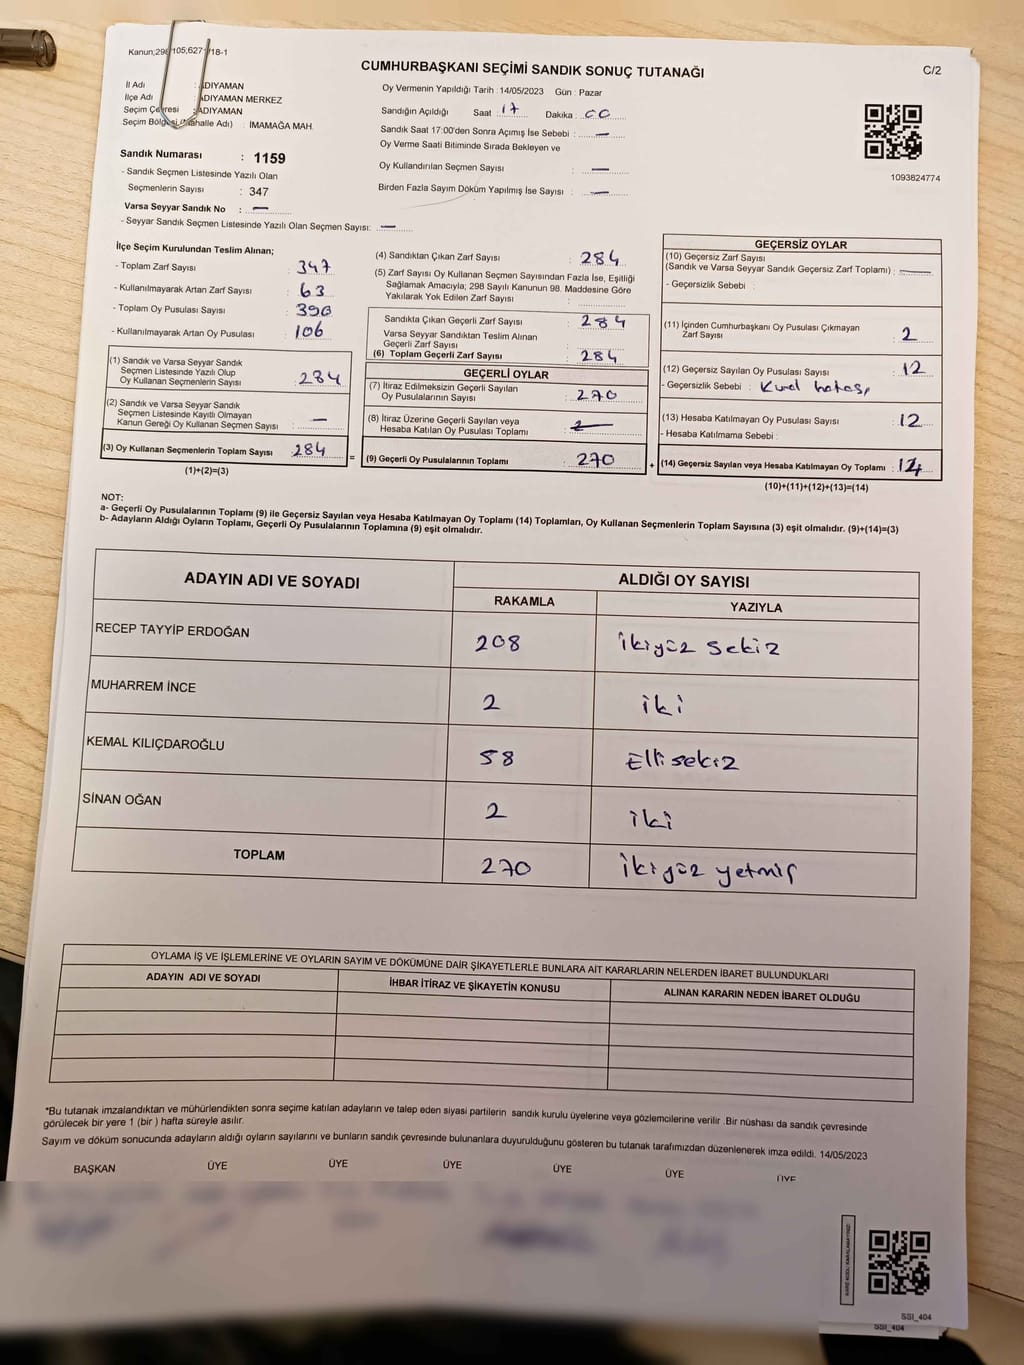 Kanun;298 105;6271/18-1
CUMHURBAŞKANI SEÇİMİ SANDIK SONUÇ TUTANAĞI
C/2
İl Adı : ADIYAMAN
İlçe Adı : ADIYAMAN MERKEZ
Seçim Çevresi : ADIYAMAN
Seçim Bölgesi (Mahalle Adı) : İMAMAĞA MAH.
Oy Vermenin Yapıldığı Tarih : 14/05/2023 Gün : Pazar
Sandığın Açıldığı Saat 17 Dakika : 00
Sandık Saat 17:00'den Sonra Açımış İse Sebebi : —
Oy Verme Saati Bitiminde Sırada Bekleyen ve
Oy Kullandırılan Seçmen Sayısı : —
Birden Fazla Sayım Döküm Yapılmış İse Sayısı : —
1093824774
Sandık Numarası : 1159
- Sandık Seçmen Listesinde Yazılı Olan
Seçmenlerin Sayısı : 347
Varsa Seyyar Sandık No : —
- Seyyar Sandık Seçmen Listesinde Yazılı Olan Seçmen Sayısı: —
İlçe Seçim Kurulundan Teslim Alınan;
- Toplam Zarf Sayısı : 347
- Kullanılmayarak Artan Zarf Sayısı : 63
- Toplam Oy Pusulası Sayısı : 390
- Kullanılmayarak Artan Oy Pusulası : 106
(1) Sandık ve Varsa Seyyar Sandık
Seçmen Listesinde Yazılı Olup
Oy Kullanan Seçmenlerin Sayısı : 284
(2) Sandık ve Varsa Seyyar Sandık
Seçmen Listesinde Kayıtlı Olmayan
Kanun Gereği Oy Kullanan Seçmen Sayısı : —
(3) Oy Kullanan Seçmenlerin Toplam Sayısı : 284
(1)+(2)=(3)
(4) Sandıktan Çıkan Zarf Sayısı : 284
(5) Zarf Sayısı Oy Kullanan Seçmen Sayısından Fazla İse, Eşitliği
Sağlamak Amacıyla; 298 Sayılı Kanunun 98. Maddesine Göre
Yakılarak Yok Edilen Zarf Sayısı :
Sandıkta Çıkan Geçerli Zarf Sayısı : 284
Varsa Seyyar Sandıktan Teslim Alınan
Geçerli Zarf Sayısı :
(6) Toplam Geçerli Zarf Sayısı : 284
GEÇERLİ OYLAR
(7) İtiraz Edilmeksizin Geçerli Sayılan
Oy Pusulalarının Sayısı : 270
(8) İtiraz Üzerine Geçerli Sayılan veya
Hesaba Katılan Oy Pusulası Toplamı :
= (9) Geçerli Oy Pusulalarının Toplamı : 270 +
GEÇERSİZ OYLAR
(10) Geçersiz Zarf Sayısı
(Sandık ve Varsa Seyyar Sandık Geçersiz Zarf Toplamı) : —
- Geçersizlik Sebebi :
(11) İçinden Cumhurbaşkanı Oy Pusulası Çıkmayan
Zarf Sayısı : 2
(12) Geçersiz Sayılan Oy Pusulası Sayısı : 12
- Geçersizlik Sebebi :
(13) Hesaba Katılmayan Oy Pusulası Sayısı : 12
- Hesaba Katılmama Sebebi :
(14) Geçersiz Sayılan veya Hesaba Katılmayan Oy Toplamı : 14
(10)+(11)+(12)+(13)=(14)
NOT:
a- Geçerli Oy Pusulalarının Toplamı (9) ile Geçersiz Sayılan veya Hesaba Katılmayan Oy Toplamı (14) Toplamları, Oy Kullanan Seçmenlerin Toplam Sayısına (3) eşit olmalıdır. (9)+(14)=(3)
b- Adayların Aldığı Oyların Toplamı, Geçerli Oy Pusulalarının Toplamına (9) eşit olmalıdır.
ADAYIN ADI VE SOYADI
ALDIĞI OY SAYISI
RAKAMLA YAZIYLA
RECEP TAYYİP ERDOĞAN 208 İkiyüz Sekiz
MUHARREM İNCE 2 İki
KEMAL KILIÇDAROĞLU 58 Elli sekiz
SİNAN OĞAN 2 İki
TOPLAM 270 İkiyüz yetmiş
OYLAMA İŞ VE İŞLEMLERİNE VE OYLARIN SAYIM VE DÖKÜMÜNE DAİR ŞİKAYETLERLE BUNLARA AİT KARARLARIN NELERDEN İBARET BULUNDUKLARI
ADAYIN ADI VE SOYADI İHBAR İTİRAZ VE ŞİKAYETİN KONUSU ALINAN KARARIN NEDEN İBARET OLDUĞU
*Bu tutanak imzalandıktan ve mühürlendikten sonra seçime katılan adayların ve talep eden siyasi partilerin sandık kurulu üyelerine veya gözlemcilerine verilir .Bir nüshası da sandık çevresinde
görülecek bir yere 1 (bir ) hafta süreyle asılır.
Sayım ve döküm sonucunda adayların aldığı oyların sayılarını ve bunların sandık çevresinde bulunanlara duyurulduğunu gösteren bu tutanak tarafımızdan düzenlenerek imza edildi. 14/05/2023
BAŞKAN ÜYE ÜYE ÜYE ÜYE ÜYE ÜYE
KARE KODU KARALAMAYINIZ!
SSI_404
SSI_404